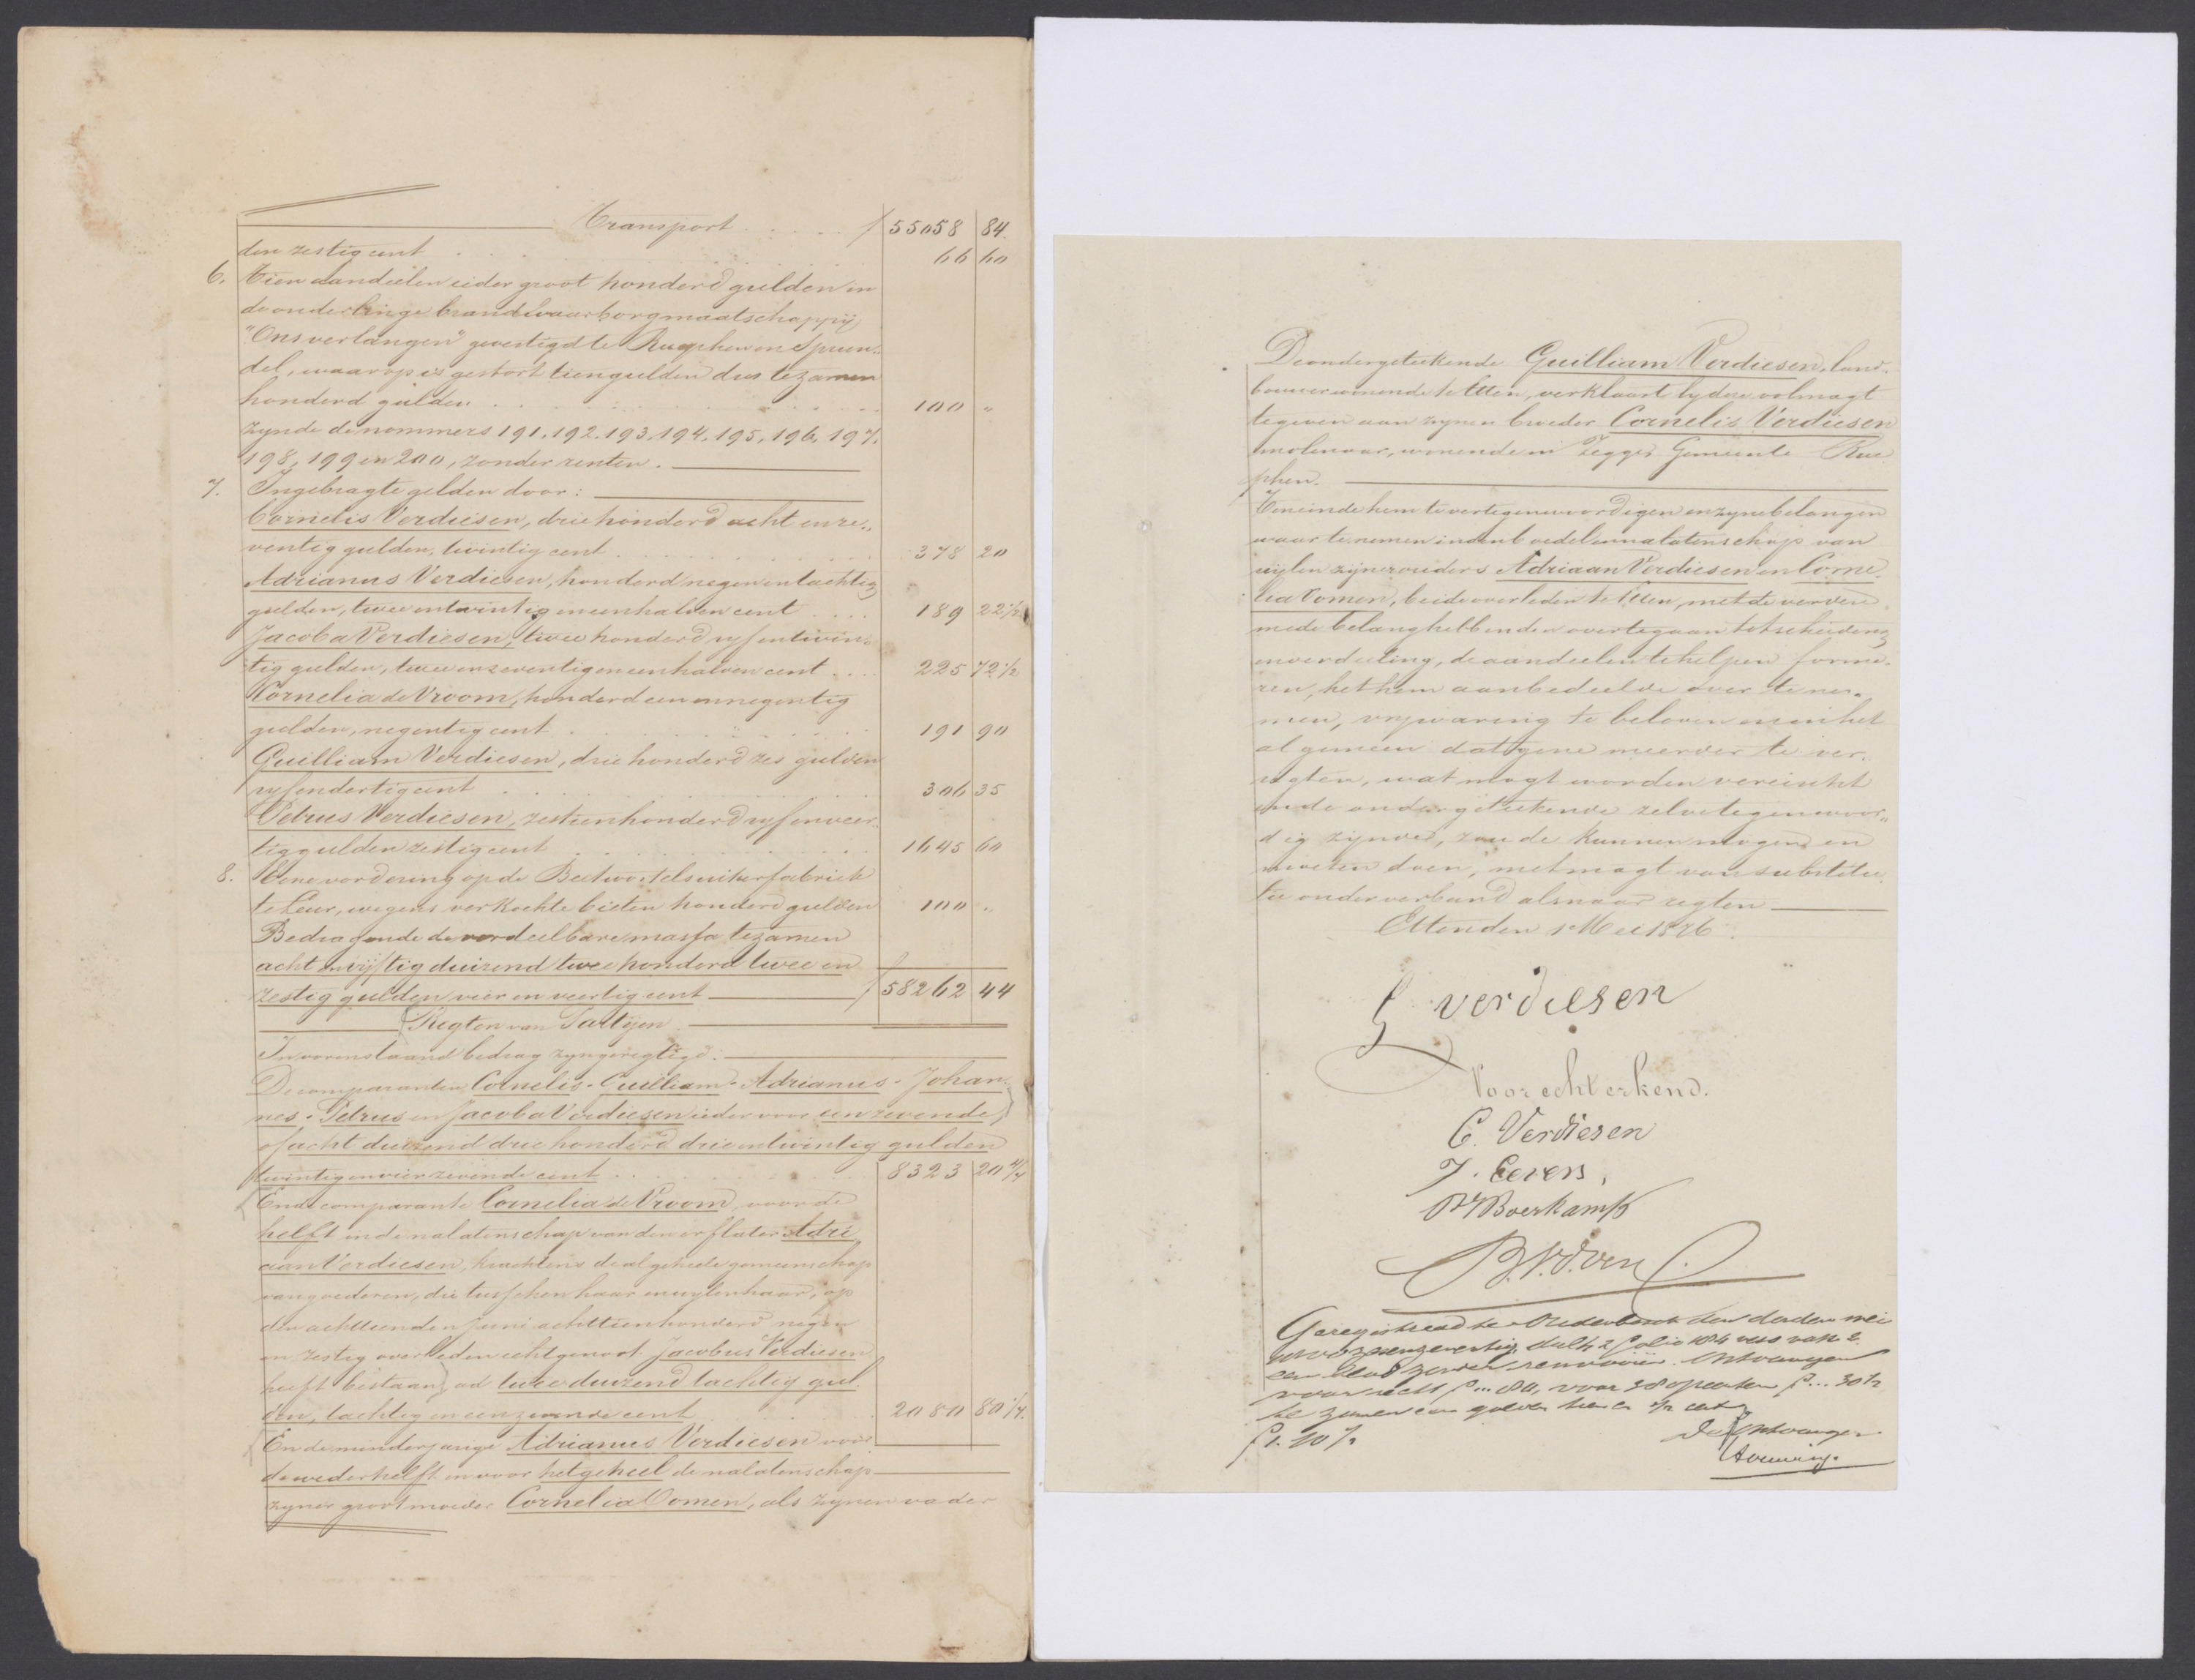 Transport . . . . . f 55058 84.
den zestig cent . . . . 66 60
6. Tien aandeelen ieder groot honderd gulden in
de onderlinge brandwaarborgmaatschappij
"Ons verlangen" gevestigd te Rucphen en Sprun„
del, waarop is gestort tien gulden dus tezamen
honderd gulden . . . . 100 "
zynde de nommers 191. 192. 193. 194. 195. 196. 197.
198, 199 en 200, zonder renten.
7. Ingebragte gelden door:
Cornelis Verdiesen, driehonderd acht en ze„
ventig gulden, twintig cent . . . . 378 20
Adrianus Verdiesen, honderd negen en tachtig
gulden, twee en twintig en een halven cent . . . 189 22 1/2
Jacoba Verdiesen, twee honderd vyf en twin„
tig gulden, twee en zeventig en een halven cent . . . 225 72 1/2
Kornelia de Vroom, honderd een en negentig
gulden, negentig cent . . . . 191 90
Guilliam Verdiesen, drie honderd zes gulden
vyf en dertig cent . . . . 306 35
Petrus Verdiesen, zestien honderd vyf en veer„
tig gulden zestig cent . . . . 1645 60
8. Eene vordering op de Beetwortelsuikerfabriek
te Leur, wegens verkochte bieten honderd gulden 100 "
Bedragende de verdeelbare massa tezamen
acht en vijftig duizend twee honderd twee en
zestig gulden vier en veertig cent f 58262 44
Regten van Partijen.
In vorenstaand bedrag zyn geregtigd:
De comparanten Cornelis - Guilliam - Adrianus - Johan„
nes - Petrus en Jacoba Verdiesen ieder voor een zevende,
of acht duizend drie honderd drie en twintig gulden
twintig en vier zevende cent . . . . 8323 20 4/7
En de comparante Cornelia de Vroom, voor de
helft in de nalatenschap van den erflater Adri
aan Verdiesen, krachtens de algeheele gemeenschap
van goederen, die tusschen haar en wylen haar, op
den achttienden Juni achttienhonderd negen
en zestig overleden echtgenoot Jacobus Verdiesen
heeft bestaan, ad twee duizend tachtig gul„
den, tachtig en een zevende cent . . . . 2080 80 1/7.
En de minderjarige Adrianus Verdiesen voor
de wederhelft en voor het geheel de nalatenschap
zyner grootmoeder Cornelia Oomen, als zynen vader
De ondergeteekende Guilliam Verdiesen, land„
bouwer wonende te Etten, verklaart by deze volmagt
te geven aan zynen broeder Cornelis Verdiesen
molenaar, wonende in Zegge, Gemeente Ruc
phen.
Ten einde hem te vertegenwoordigen en zyne belangen
waar te nemen in den boedel en nalatenschap van
wylen zijner ouders Adriaan Verdiesen en Corne„
lia Oomen, beide overleden te Etten, met de verdere
mede belanghebbenden over te gaan tot scheiding
en verdeeling, de aandeelen te helpen forme„
ren, het hem aanbedeelde over te ne„
men, vrijwaring te beloven en in het
algemeen datgene meerder te ver„
rigten, wat mogt worden vereischt
en de ondergeteekende zelve tegenwoor„
dig zijnde, zoude kunnen mogen en
moeten doen, met magt van substitu„
tie onder verband als naar regten
Etten den 1 Mei 1876.
G verdiesen
Voor echt erkend.
C. Verdiesen
J. Eevers,
Boerkamp
B. V. d. Ven
Geregistreerd te Oudenbosch den derden mei
zes en zeventig, deel 42 folio 184 vak 2
een blad zonder renvooien. Ontvangen
voor recht f... 80, voor 38 opcenten f... 30 1/2
te zamen een gulden tien en 1/2 cent
f 1. 10 1/2 De Ontvanger